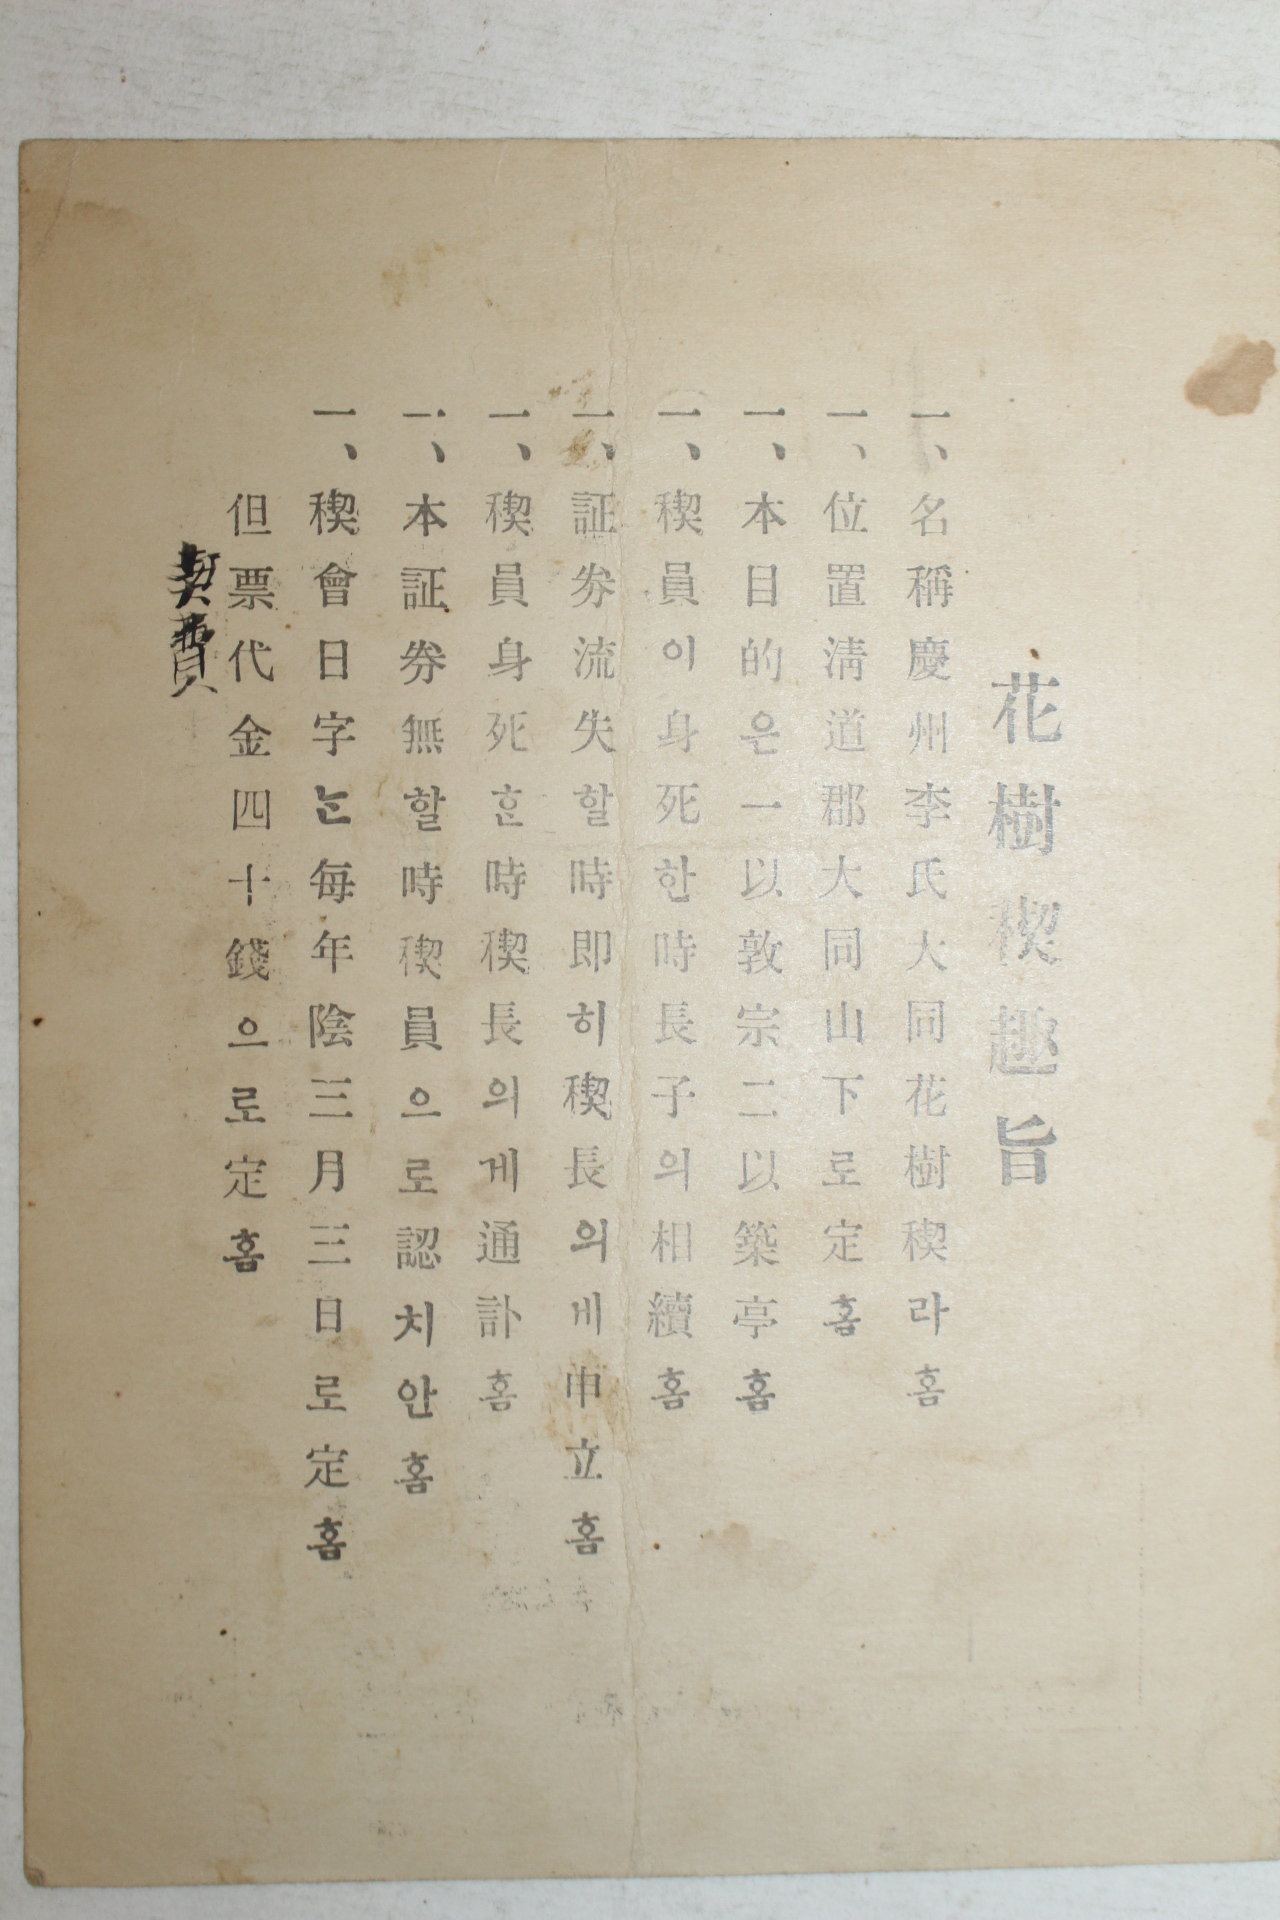 花樹稧趣旨
一、名稱慶州李氏大同花樹稧라홈
一、位置淸道郡大同山下로定홈
一、本目的은一以敦宗二以築亭홈
一、稧員이身死한時長子의相續홈
一、証券流失할時即히稧長의게申立홈
一、稧員身死흔時稧長의게通訃홈
一、本証券無할時稧員으로認치안홈
一、稧會日字는每年陰三月三日로定홈
但票代金四十錢으로定홈
契費